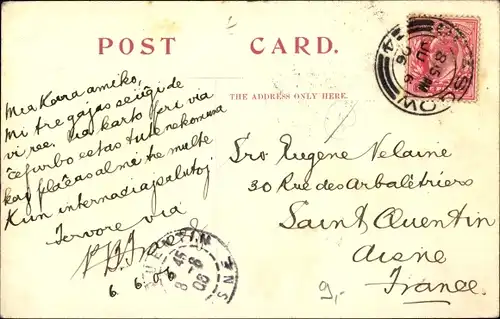 POST CARD.
THE ADDRESS ONLY HERE.
Mia Kara amiko,
Mi tre gajas sciigi de
vi ree. La karto pri via
ĉefurbo estas tute nekonata
kaj plaĉas al mi tre multe
Kun internaciaj salutoj
Fervore via
6. 6. 06
Sro Eugène Velaine
30 Rue des Arbalétriers
Saint Quentin
Aisne
France.
9,-